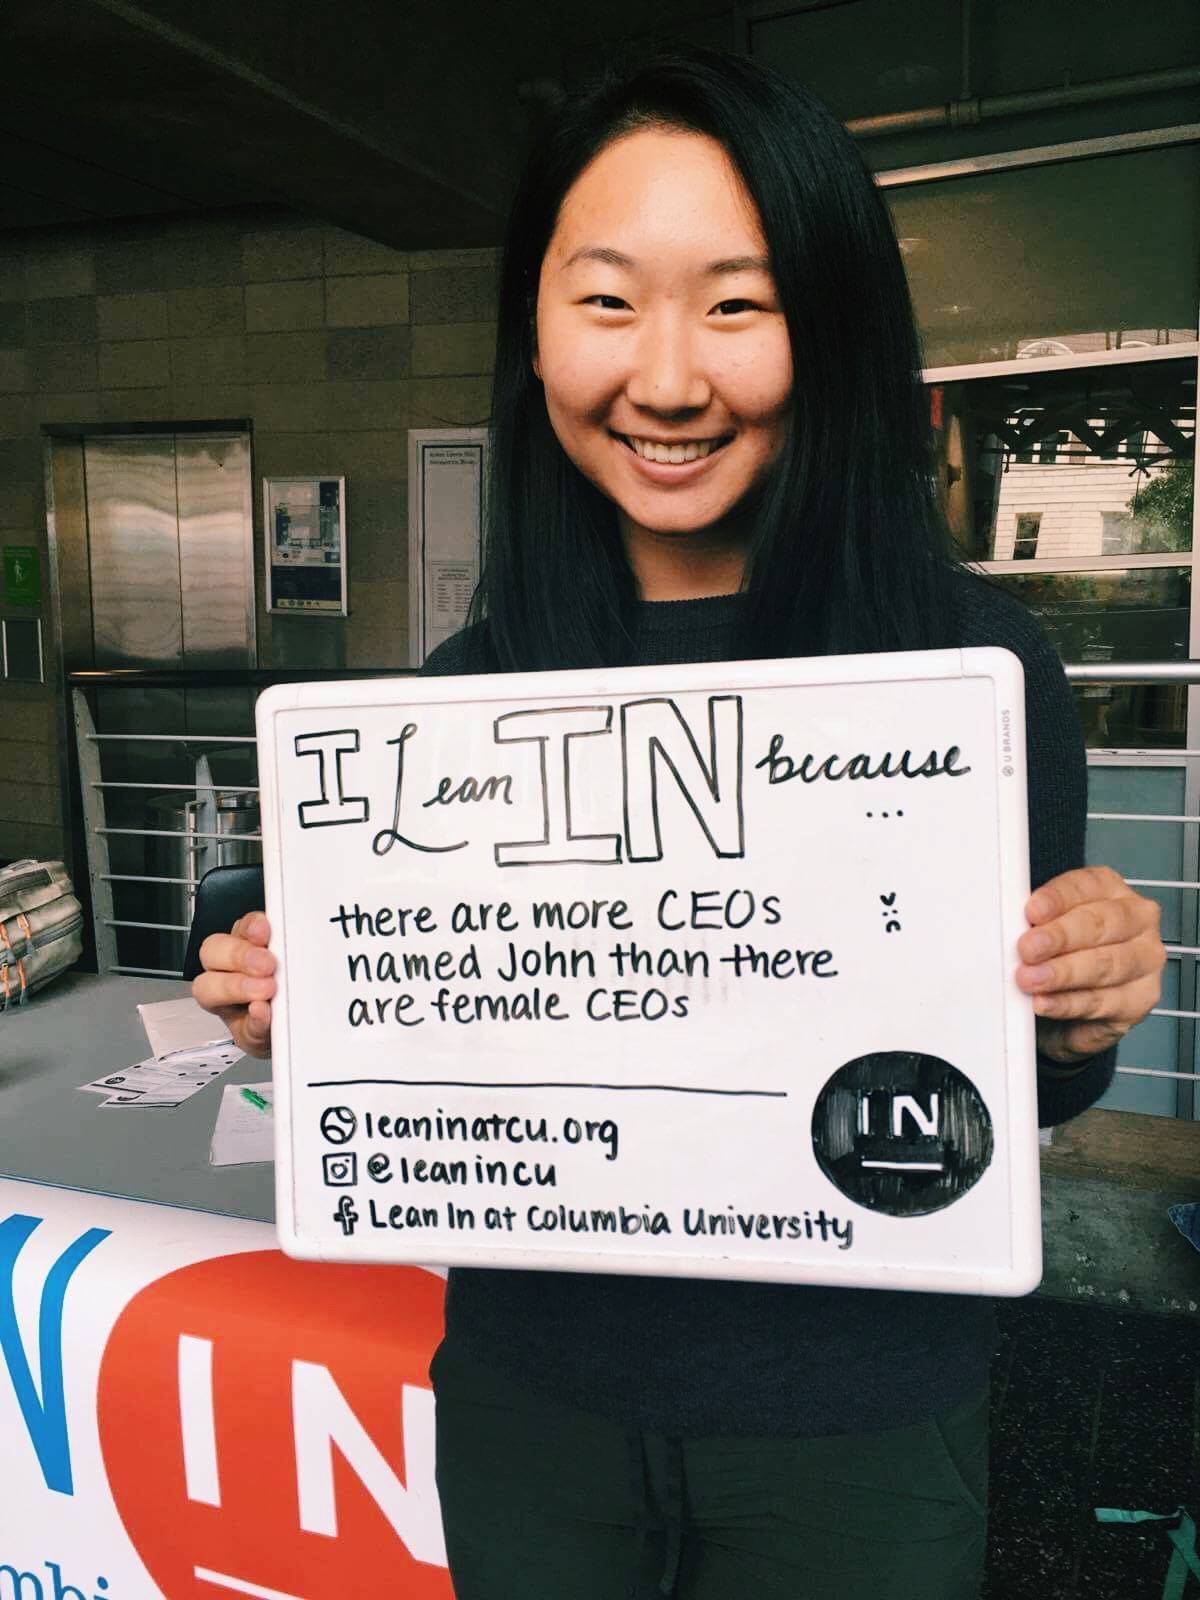 I Lean IN because
...
there are more CEOs
named John than there
are female CEOs
leaninatcu.org
@leanincu
Lean In at Columbia University
IN
U BRANDS
IN